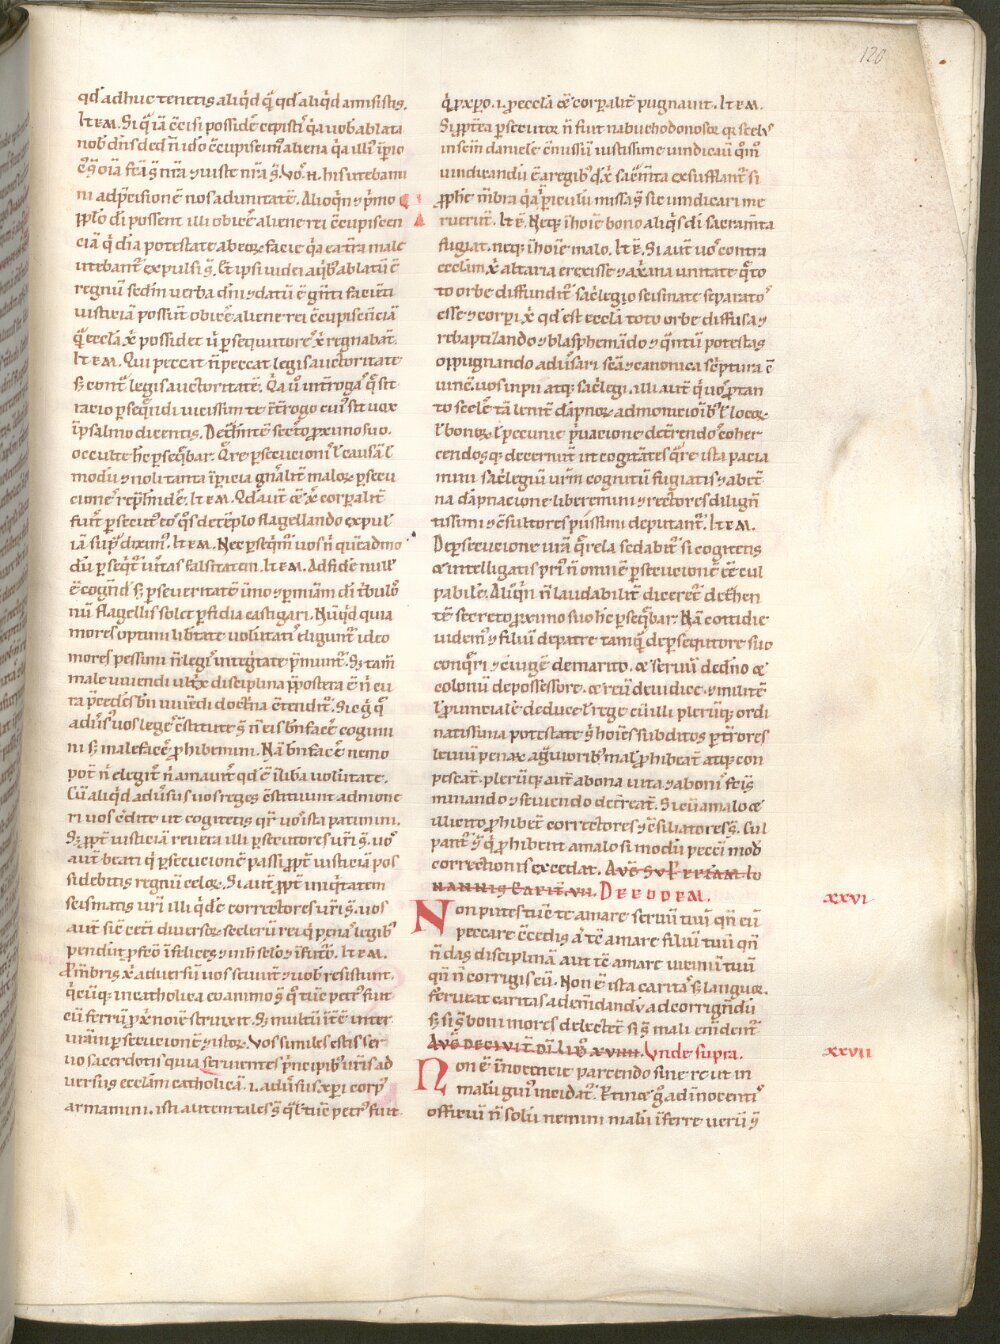 120
qd̄ adhuc tenetis aliq̇d q̄ qd̄ aliq̇d amisistis.
Item. Si q̄ iā ēcisi possidē cepist̄ q̇a uob̄ ablata
nob̄ dn̄s ded̄ n̄ idō c̄cupiscim̄ aliena q̇a illī īpio
ni ad p̄cisionē nos ad unitatē. Alioq̇n ⁊ p̄mo
pp̄lo dī possent illi obicē aliene rei c̄cupiscen
ciā q̇ diā potestate ab eor̄ facie q̇a ea t̄ra male
utebant̄ expulsi s̄. Et ipsi iudei a q̇b̄ ablatū ē
regnū scdm̄ uerba dn̄i ⁊ datū ē gn̄ti faciēti
iusticiā possunt̄ obicē aliene rei c̄cupiscēciā
q̄ ecclā x̄ possidet u̇ psequitore x̄ regnabat̄.
Item. Qui peccat n̄ peccat legis auctoritate
s; cont̄ legis auctoritatē. Q̇a u̇ int̄roga q̄ sit
iacio p seq̄ndi uicissim te īt̄rogo cui s̄ uox
ī psalmo dicentis. Det̄hintē secreto proximo suo.
occulte hc̄ p seq̄bar. Q̄re p secucioni l̄ causā l̄
modū ⁊ noli tanta īpicia gn̄alit̄ malor̄ p secu
cionē rep̄hendē. Item. Qd̄ aut̄ ōe x̄ corpalit̄
fuit̄ p secut̄ eo q̄s de tēplo flagellando expul
iā sup̄ diximꝰ. Item. Nec p seq̄m̄ uos n̄ quēadmo
dū p seq̄t̄ uītas falsitatem. Item. Ad fidē null
ē cogn̄d s; p seueritatē īmo ⁊ p mīam dī t̄bulo
nū flagellis solet pfidia castigari. Nūq̇d quia
mores optimi lib̄tate uolūtatī eligunt̄ ideo
mores pessimi n̄ legī īteg̓tate p̄munt̄. S; tam̄
male uiuendi ultr̄x disciplina p̄postera ē n̄ cū
ta p̄cedēs bn̄ uiuēdi doctīna c̄tendit̄. Si q̇ q̄
adūs uos legē c̄stitute s̄ n̄ eis bn̄ facē cogim
ni s; male facē p̄hibemini. Nā bn̄ facē nemo
pot̄ n̄ elegit̄ n̄ amaūt qd̄ ē ī liba uolūtate.
Cū aliq̇d adūsus uos reges c̄stituunt admone
ri uos c̄dite ut cogitetis q̄r uō ista patimini.
S; p̄pt̄ iusticiā reuera illi p secutores ur̄i s̄. uō
aut̄ beati q̇ p secucionē passi p̄pt̄ iusticiā pos
sidebitis regnū celor̄. Si aut̄ p̄pt̄ iniq̇tatem
scismatis ur̄i illi q̇dē correctores ur̄i s̄. uos
aut̄ sic̄ cet̄i diuersor̄ scelerū rei q̇ pena legib̄
pendūt̄ p̄feō īfelices ⁊ in h̄ sclo ⁊ ī futo. Item.
P̄m̄bris x̄ aduersū uos seuiunt ⁊ uob̄ resistunt
q̇cūq; in catholica eōammo s̄ q̇ tūc petrꝰ fuit
cū ferrū p̄ x̄ noīe strinxit. S; multū īt̄ē inter
urām p secucionē ⁊ istor̄. Vos similes estis ser
uo sacerdotis quia seruientes p̄ncipib̄ ur̄is ad
uersus ecclam catholicā .i. adūsus xpi corpꝰ
armamini. isti autem tales s̄ q̄l̄ tūc petrꝰ fuit
q̇ p xp̄o .i. p ecclā ōē corpalit̄ pugnauit. Item.
Si p̄pt̄ea p secutor n̄ fuit nabuchodonosor q; scelꝰ
in scm̄ daniele c̄missū iustissime uindicaū q̄m̄
uindicandū ē a regib̄ q̇d x̄ sac̄m̄ta exsufflant̄ si
p̄phe m̄bra q̇a ī piculū missa s̄ sic uindicari me
ruerūt. It̄ē. Neq; ī hoīe bono aliq̇s dī sacram̄ta
fugiat. neq; ī hoīe malo. It̄ē. Si aut̄ uos contra
ecclām x̄ altaria erexisse ⁊ a xana unitate q̄ to
to orbe diffundit̄ sac̄legio scismate separatos
esse ⁊ corpī x̄ qd̄ est eccla toto orbe diffusa ⁊
rebaptizando ⁊ blasphemādo ⁊ q̄ntū potestas
oppugnando adūsari scā ⁊ canonica sc̄ptura c̄
uinc̄. uos inpii atq; sac̄legi. illi aut̄ q̇ uos p̄ tan
to scelē tā lenit̄ dāpnor̄ admonicioib̄ l̄ locor̄
l̄ bonor̄ l̄ pecunie p̄uacione det̄rendos coher
cendosq; decernūt ut cogitātes q̄re ista pacia
mini sac̄legiū urm̄ cognitū fugiatis ⁊ ab et̄
na dāpnacione liberemini ⁊ rectores dilign̄
tissimi ⁊ c̄sultores piissimi deputant̄. Item.
De p secucione urā q̄rela sedabit̄ si cogitetis
⁊ intelligatis pri n̄ omnē p secucionē c̄ē cul
pabile. Alioq̇n n̄ laudabilit̄ dicēret̄ det̄hen
tē secreto proximo suo hc̄ p seq̄bar. Nā cotidie
uidemꝰ ⁊ filiū de patre tamq̄ de p sequitore suo
conq̄ri ⁊ ciugē de marito. ⁊ seruū de dn̄o ⁊
colonū de possessore. ⁊ reū de iudice. ⁊ militē
l̄ puincialē de duce l̄ rege cū illi plerūq; ordi
natissima potestate s̄ hoīes subditos p t̄rores
leuiū penar̄ a g̓uiorib̄ malis p̄hibeāt atq; con
pescāt. plerūq; aut̄ a bona uita ⁊ a bonis fc̄is
minando ⁊ seuiendo det̄reāt. Si cū a malo ⁊
illicito p̄hibēt correctores ⁊ c̄siliatores s̄. cul
pant̄ ⁊ q̇ p̄hibent a malo si modū pecci mod
correctionis excedat. Aug̓ sup̓ epl̄am io
hannis cap̄it. vii. De eodem.
xxvi
Non putes tūc te amare seruū tuū qn̄ cū
peccare c̄cedis aut̄ tē amare filiū tuū qn̄
n̄ das disciplinā aut tē amare uicinū tuū
qn̄ n̄ corrigis eū. Non ē ista caritas s; languor.
ferueat caritas ad em̄dandū ad corrign̄dū
s; si s̄ boni mores delectēt si s̄ mali em̄dent̄
Aug̓ de civit̄ dī lib̓ xviiii. Unde supra.
xxvii
Non ē īnocencie parcendo sinere ut in
malū guiꝰ incidat̄. P̄tinc̄ g̊ ad īnocentis
officiū n̄ solū nemini malū īferre uerū ⁊